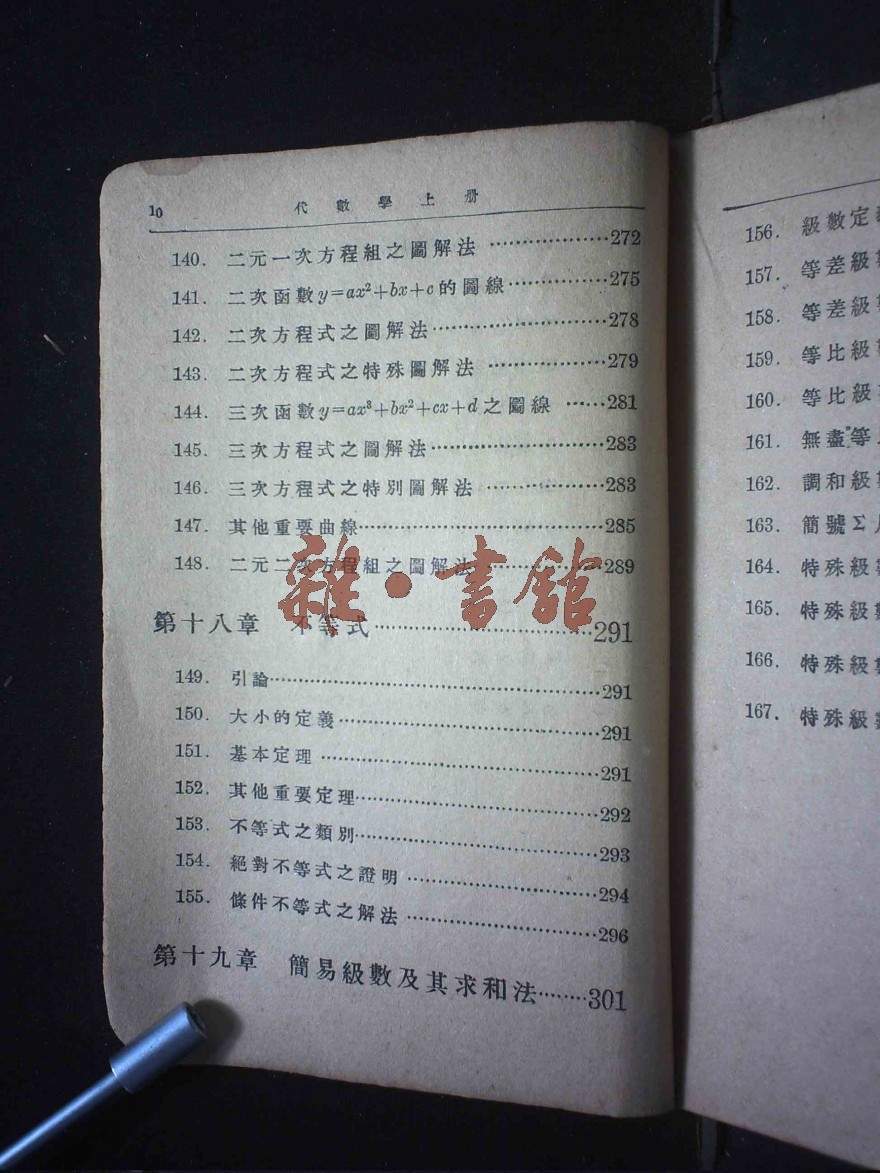 10 代數學上册
140. 二元一次方程組之圖解法 ……………272
141. 二次函數y=ax²+bx+c的圖線……………275
142. 二次方程式之圖解法……………………278
143. 二次方程式之特殊圖解法 ……………279
144. 三次函數y=ax³+bx²+cx+d之圖線 ……281
145. 三次方程式之圖解法……………………283
146. 三次方程式之特別圖解法 ……………283
147. 其他重要曲線……………………………285
148. 二元二次方程組之圖解法 ……………289
雜·書館
第十八章 不等式…………………………291
149. 引論………………………………………291
150. 大小的定義………………………………291
151. 基本定理 ………………………………291
152. 其他重要定理……………………………292
153. 不等式之類別……………………………293
154. 絕對不等式之證明 ……………………294
155. 條件不等式之解法 ……………………296
第十九章 簡易級數及其求和法………301
156. 級數定
157. 等差級
158. 等差級
159. 等比級
160. 等比級
161. 無盡等
162. 調和級
163. 簡號Σ
164. 特殊級
165. 特殊級
166. 特殊級
167. 特殊級